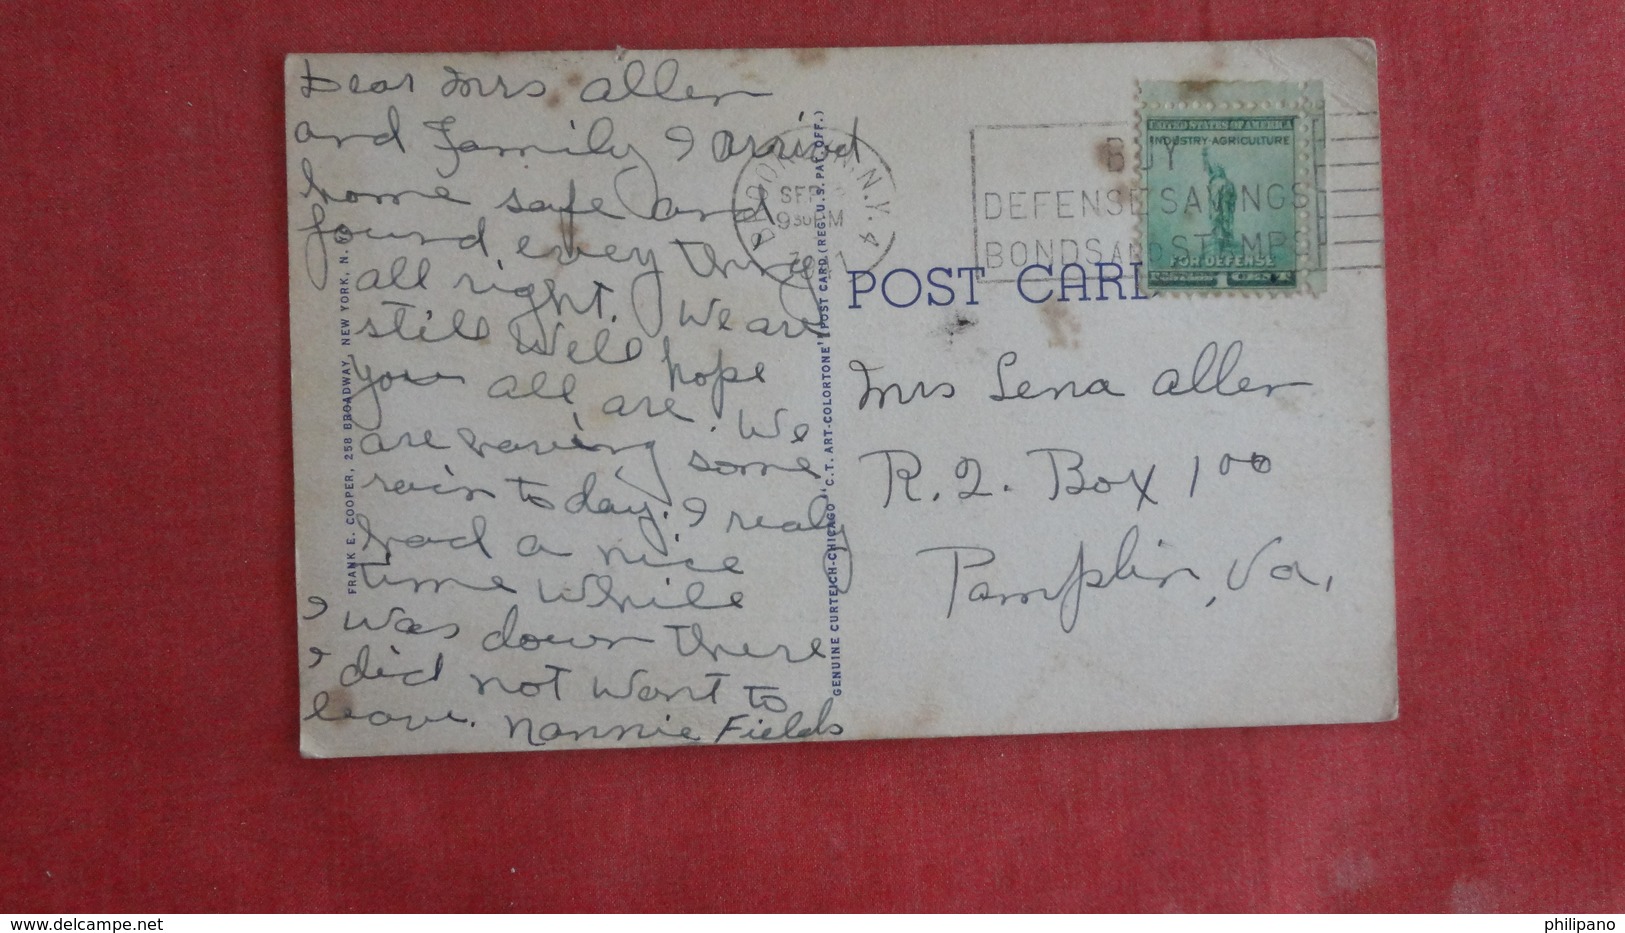 Dear Mrs Allen
and Family I arrived
home safe and
found every thing
all right. We are
still well hope
you all are. We
are having some
rain to day. I realy
had a nice
time while
I was down there
I did not want to
leave. Nannie Fields
FRANK E. COOPER, 258 BROADWAY, NEW YORK, N.
GENUINE CURTEICH-CHICAGO "C.T. ART-COLORTONE" POST CARD (REG. U.S. PAT. OFF.)
N.Y. 4
SEP
930 PM
BUY
DEFENSE SAVINGS
BONDS AND STAMPS
UNITED STATES OF AMERICA
INDUSTRY-AGRICULTURE
FOR DEFENSE
POST CARD
Mrs Lena Allen
R. 2. Box 100
Pamplin, Va.
philipano